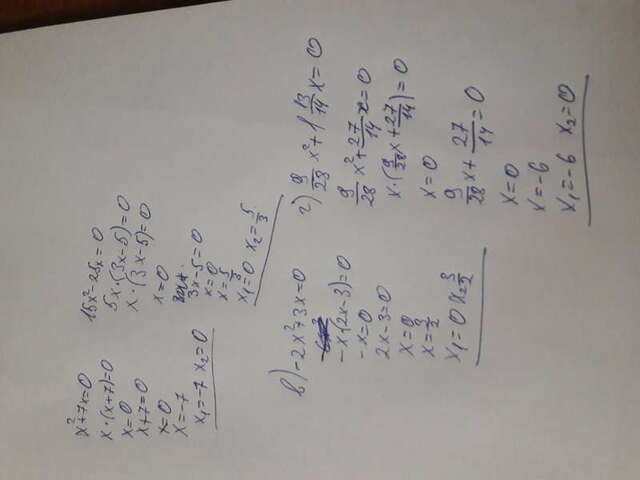 x²+7x=0
x·(x+7)=0
x=0
x+7=0
x=0
x=-7
x₁=-7 x₂=0
15x²-25x=0
5x·(3x-5)=0
x·(3x-5)=0
x=0
3x-5=0
x=0
x=5/3
x₁=0 x₂=5/3
в) -2x²+3x=0
-x·(2x-3)=0
-x=0
2x-3=0
x=0
x=3/2
x₁=0 x₂ 3/2
г) 9/28 x²+1 13/14 x=0
9/28 x²+27/14 x=0
x·(9/28 x+27/14)=0
x=0
9/28 x+27/14=0
x=0
x=-6
x₁=-6 x₂=0